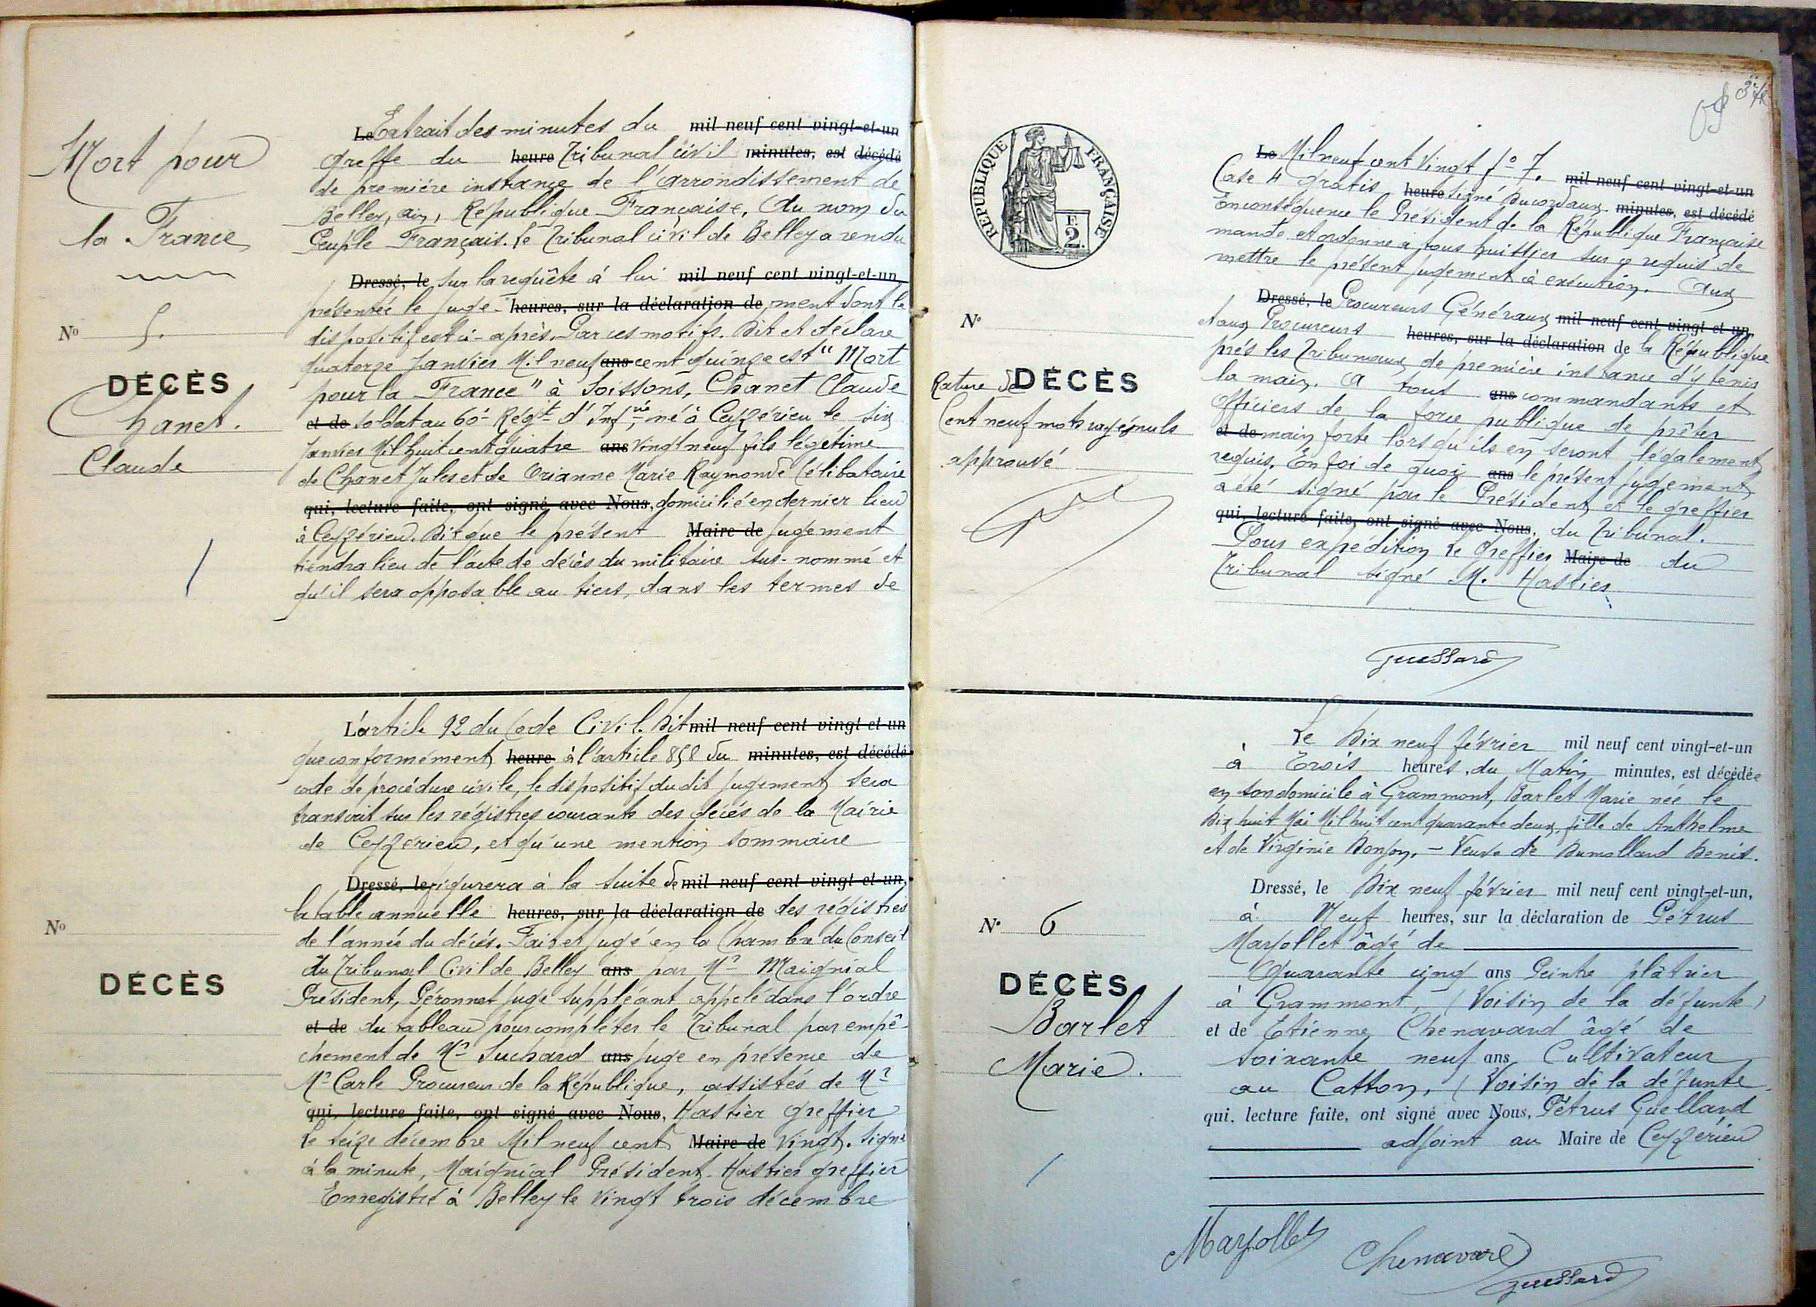 Mort pour
la France
N° 5.
DÉCÈS
Chanet.
Claude
Le Extrait des minutes du mil neuf cent vingt-et-un
Greffe du heure Tribunal civil minutes, est décédé
de première instance de l'arrondissement de
Belley, ain, République Française, Au nom du
Peuple Français. Le Tribunal civil de Belley a rendu
Dressé, le sur la requête à lui mil neuf cent vingt-et-un,
présentée le juge- heures, sur la déclaration de ment dont le
dispositif est ci-après. Par ces motifs. Dit et déclare
quatorze Janvier Mil neuf ans cent quinze est "Mort
pour la France" à Soissons, Chanet Claude
et de soldat au 60e Régt d'Infie né à Ceyzérieu le six
Janvier Mil huit cent quatre ans vingt neuf fils légitime
de Chanet Jules et de Orianne Marie Raymonde Célibataire
qui, lecture faite, ont signé avec Nous, domicilié en dernier lieu
à Ceyzérieu. Dit que le présent Maire de jugement
tiendra lieu de l'acte de décès du militaire sus-nommé et
qu'il sera opposable au tiers, dans les termes de
L'article 92 du Code Civil. Dit mil neuf cent vingt-et-un
que conformément heure à l'article 858 du minutes, est décédé
code de procédure civile, le dispositif du dit jugement sera
transcrit sur les régistres courants des décès de la Mairie
de Ceyzérieu, et qu'une mention sommaire
N°
DÉCÈS
Dressé, le figurera à la suite de mil neuf cent vingt-et-un,
la table annuelle heures, sur la déclaration de des régistres
de l'année du décès. Fait et jugé en la Chambre du Conseil
du Tribunal Civil de Belley ans par Mr Maignial
Président, Péronnet juge suppléant appelé dans l'ordre
et de du tableau pour compléter le Tribunal par empê-
chement de Mr Suchard ans juge en présence de
Mr Carle Procureur de la République, assistés de Mr
qui, lecture faite, ont signé avec Nous, Hastier Greffier
le seize décembre Mil neuf cent Maire de vingt. Signé
à la minute, Maignial Président. Hastier greffier
Enregistré à Belley le vingt trois décembre
RÉPUBLIQUE FRANÇAISE
2
N°
DÉCÈS
Rature de
Cent neuf mots rayés nuls
approuvé
Le Mil neuf cent Vingt f° 7. mil neuf cent vingt-et-un
Case 4 gratis heure signé minutes, est décédé
En conséquence le Président de la République Française
mande et ordonne a tous huissier sur ce requis de
mettre le présent jugement à exécution. Aux
Dressé, le Procureurs Généraux mil neuf cent vingt et un,
et aux Procureurs heures, sur la déclaration de de la République
près les Tribunaux de première instance d'y tenir
la main. A tout ans commandants et
Officiers de la force publique de prêter
et de main forte lors qu'ils en seront légalement
requis. En foi de quoi ans le présent jugement
a été signé par le Président et le greffier
qui, lecture faite, ont signé avec Nous, du Tribunal.
Pour expédition le Greffier Maire de du
Tribunal signé M. Hastier
Guelland
N° 6
DÉCÈS
Barlet
Marie.
Le Dix neuf février mil neuf cent vingt-et-un
à Trois heures, du Matin minutes, est décédée
en son domicile à Grammont, Barlet Marie née le
Dix huit Mai Mil huit cent quarante deux, fille de Anthelme
et de Virginie Bonson, - Veuve de Dumolland Denis.
Dressé, le Dix neuf février mil neuf cent vingt-et-un,
à Neuf heures, sur la déclaration de Pétrus
Marjollet âgé de
Quarante cinq ans Peintre plâtrier
à Grammont, (Voisin de la défunte)
et de Etienne Chenavard âgé de
soixante neuf ans Cultivateur
au Catton, (Voisin de la défunte
qui, lecture faite, ont signé avec Nous, Pétrus Guelland
adjoint au Maire de Ceyzérieu
Marjollet
Chenavard
Guelland